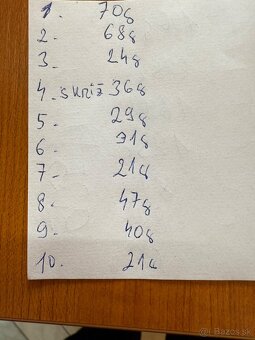 1. 70g
2. 68g
3. 24g
4. skriž 36g
5. 29g
6. 31g
7. 21g
8. 47g
9. 40g
10. 21g
sbazar.sk